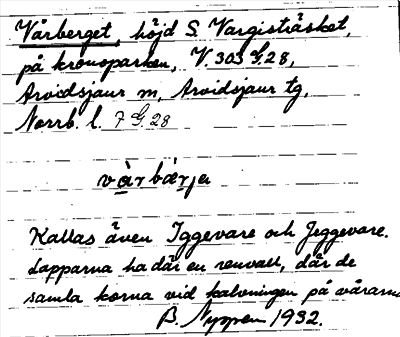 Vårberget, höjd S. Vargisträsket,
på kronoparken, V. 303 G. 28,
Arvidsjaur sn, Arvidsjaur tg,
Norrb. l. 7 G. 28
vàrbærja
Kallas även Iggevare och Jeggevare.
Lapparna ha där en renvall, där de
samla korna vid kalvningen på vårarna
B. Nyppen 1932.